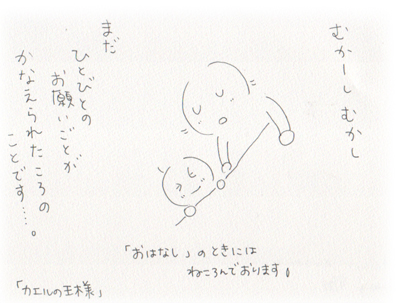 むかーし むかし
まだ
ひとびとの
お願いごとが
かなえられたころの
ことです……。
「おはなし」のときには
ねころんでおります。
「カエルの王様」